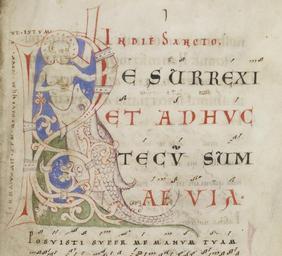 IN DIE SANCTO.
RESURREXI
ET ADHVC
TECV̄ SUM
AEVIA.
POSVISTI SVPER ME MANVM TVAM